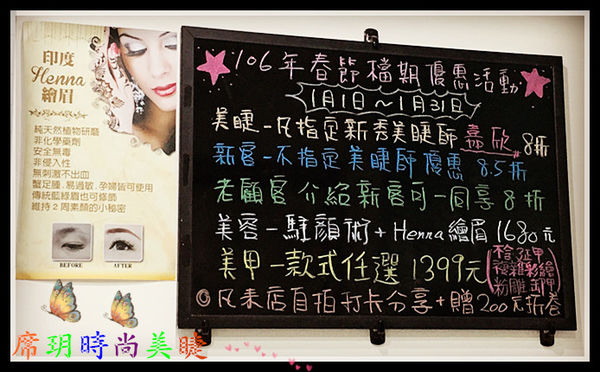 印度
Henna
繪眉
純天然植物研磨
非化學藥劑
安全無毒
非侵入性
無刺激不出血
蟹足腫.易過敏.孕婦皆可使用
傳統藍綠眉也可修飾
維持2周素顏的小秘密
BEFORE AFTER
106年春節檔期優惠活動
1月1日~1月31日
美睫-凡指定新秀美睫師 嘉欣 8折
新客-不指定美睫師優惠 8.5折
老顧客介紹新客可一同享8折
美容-騷顏術+Henna繪眉1680元
美甲-款式任選1399元
粉雕 卸甲
◎凡來店自拍打卡分享+贈200元折卷
席玥時尚美睫